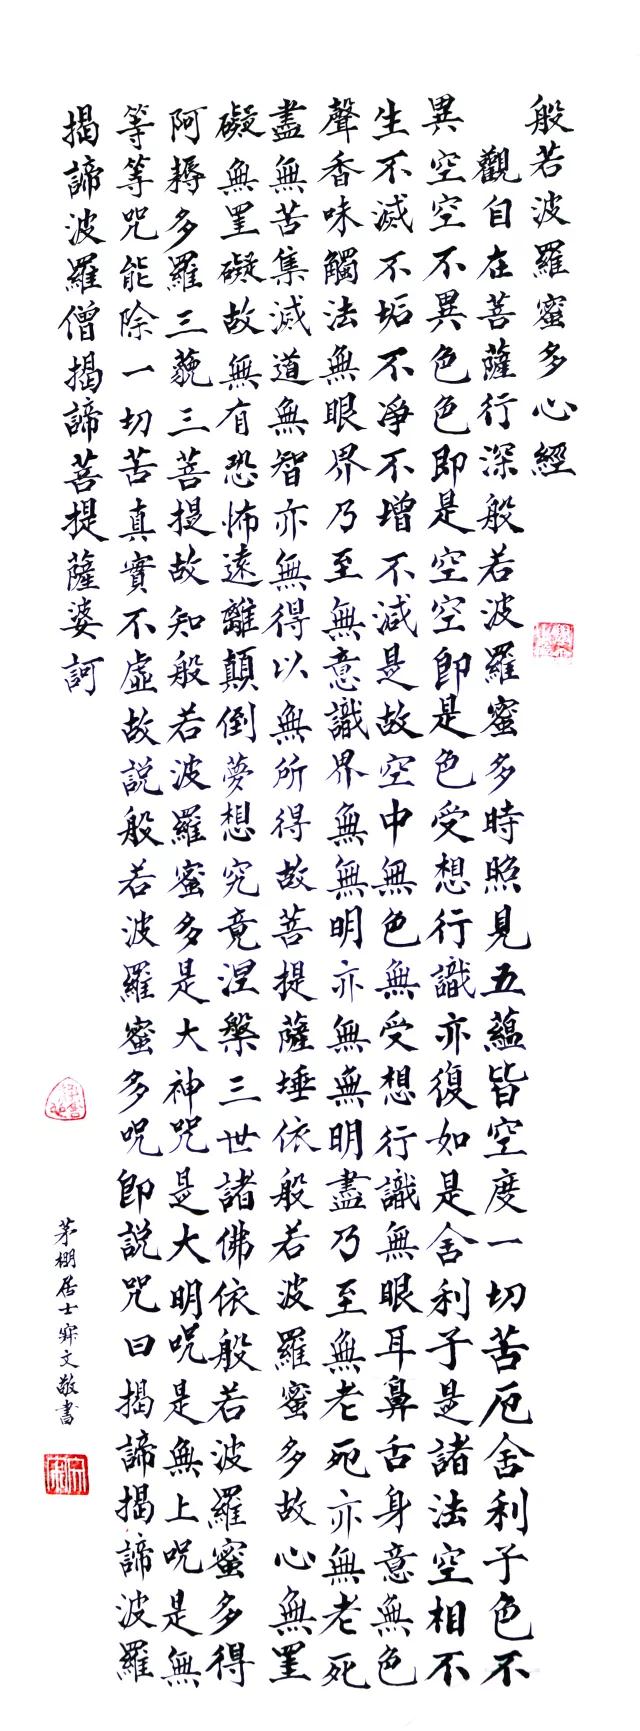 般若波羅蜜多心經
觀自在菩薩行深般若波羅蜜多時照見五蘊皆空度一切苦厄舍利子色不
異空空不異色色即是空空即是色受想行識亦復如是舍利子是諸法空相不
生不滅不垢不淨不增不減是故空中無色無受想行識無眼耳鼻舌身意無色
聲香味觸法無眼界乃至無意識界無無明亦無無明盡乃至無老死亦無老死
盡無苦集滅道無智亦無得以無所得故菩提薩埵依般若波羅蜜多故心無罣
礙無罣礙故無有恐怖遠離顛倒夢想究竟涅槃三世諸佛依般若波羅蜜多得
阿耨多羅三藐三菩提故知般若波羅蜜多是大神咒是大明咒是無上咒是無
等等咒能除一切苦真實不虛故說般若波羅蜜多咒即說咒曰揭諦揭諦波羅
揭諦波羅僧揭諦菩提薩婆訶
茅棚居士文敬書